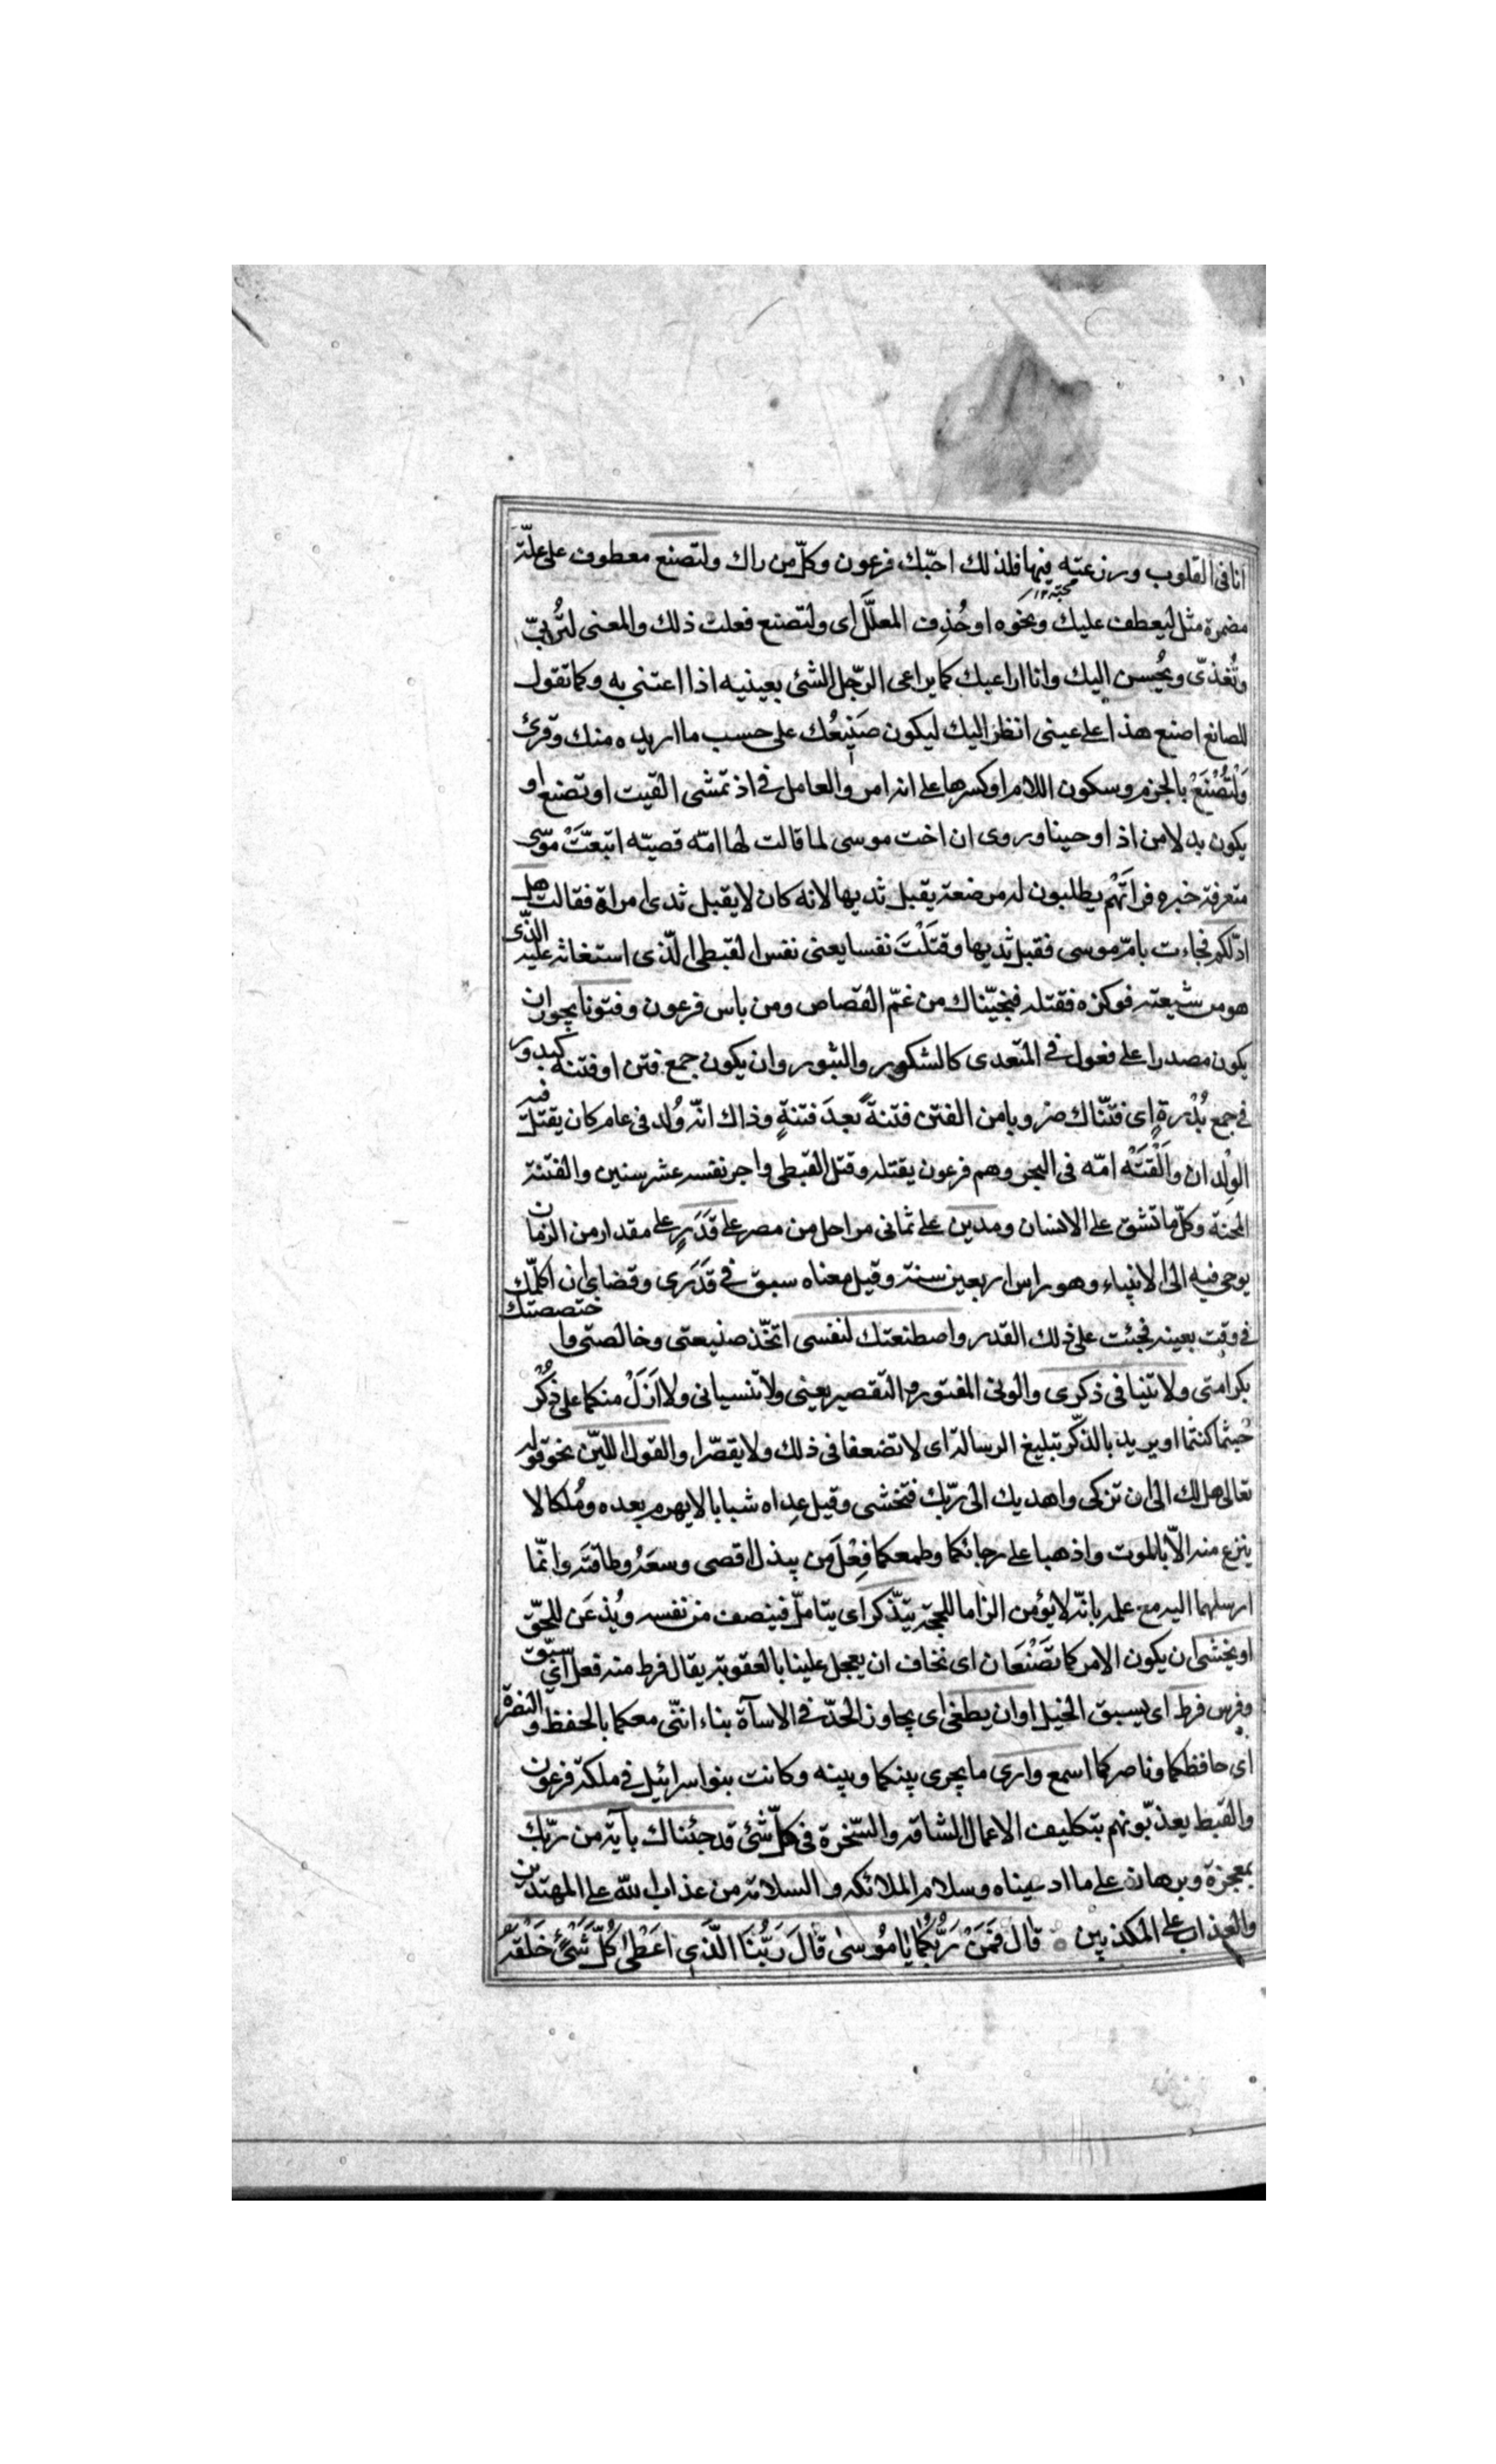 انا فى القلوب وزرعته فيها فلذلك احبّك فرعون وكلّ من راك ولتصنع معطوف على علّة
محبة ١٢
مضمرة مثل ليعطف عليك ونحوه او حُذِف المعلَّل اى ولتصنع فعلت ذلك والمعنى لتُربّى
وتُغذّى ويُحسن اليك وانا اراعيك كما يراعى الرّجل الشئ بعينيه اذا اعتنى به وكما تقول
للصانع اصنع هذا على عينى انظر اليك ليكون صَنِيعُك على حسب ما اريده منك وقرئ
وَلْتُصْنَعْ بالجزم وسكون اللام او كسرها على انه امر والعامل فى اذ تمشى القيت او تصنع او
يكون بدلا من اذ اوحينا وروى ان اخت موسى لما قالت لها امّه قصيّه اتبعّتْ موسى
متعرفة خبره فراَتْهم يطلبون له مرضعة يقبل ثديها لانه كان لا يقبل ثدى امراة فقالت هل
ادلّكم فجاءت بامّ موسى فقبل ثديها وقتَلْتَ نفسا يعنى نفس القبطى الّذى استغاثه عليه الّذى
هو من شيعته فوكزه فقتله فنجيّناك من غمّ القصاص ومن باس فرعون وفتونا يجوز ان
يكون مصدرا على فعول فى المتعدى كالشكور والثبور وان يكون جمع فتن او فتنه كبدور
فى جمع بُدْرةٍ اى فتنّاك ضروبا من الفتن فتنةً بعدَ فتنةٍ وذاك انّه وُلد فى عام كان يقتل فيه
الوِلدان واَلْقَتْه امّه فى البحر وهم فرعون بقتله وقتل القبطى واجر نفسه عشر سنين والفتنة
المحنة وكلّ ما تشق على الانسان ومدين على ثمانى مراحل من مصر على قَدَرٍ على مقدار من الزمان
يوحى فيه الى الانبياء وهو راس اربعين سنة وقيل معناه سبق فى قَدَرى وقضاى ان اكلّمك
فى وقت بعينه فجئت على ذلك القدر واصطنعتك لنفسى اتخّذ صنيعتى وخالصتى واختصصتك
بكرامتى ولا تنيا فى ذكرى والونى الفتور والتقصير يعنى ولا تنسيانى ولا اَزَلْ منكما على ذُكْر
حُيثما كنتما او يريد بالذكّر تبليغ الرسالة اى لا تضعفا فى ذلك ولا يقصّرا والقول الليّن نحو قوله
تعالى هل لك الى ان تزكى واهديك الى ربّك فتخشى وقيل عِداه شبابا لا يهرم بعده ومُلكا لا
ينزع منه الّا بالموت واذهبا على رجائكما وطمعكما فِعْلَ من يبذل اقصى وسعَهُ وطاقتَه وانّما
ارسلهما اليه مع علمه بانّه لا يؤمن الزاما للحجة يتذّكر اى يتاملّ فينصف من نفسه ويُذعَن للحقّ
او يخشى ان يكون الامر كما تَصْنَعَان اى نخاف ان يعجل علينا بالعقوبة يقال فرط منه فعل اى سبّق
وفرس فرط اى يسبق الخيل او ان يطغى اى يجاوز الحدّ فى الاسآة بناء انّنى معكما بالحفظ والنصرة
اى حافظكما وناصركما اسمع وارى ما يجرى بينكما وبينه وكانت بنو اسرائيل فى ملكة فرعون
والقبط يعذّبونهم بتكليف الاعمال الشاقه والسّخرة فى كلّ شئ قد جئناك بآية من ربّك
بمعجزة وبرهان على ما ادعيناه وسلام الملائكه والسلامة من عذاب الله على المهتدين
والعذاب على المكذبين قال فَمَنْ رَبُّكُمٰا يٰا مُوسىٰ قٰالَ رَبُّنٰا الَّذى اَعْطىٰ كُلَّ شَئْ خَلْقَهُ